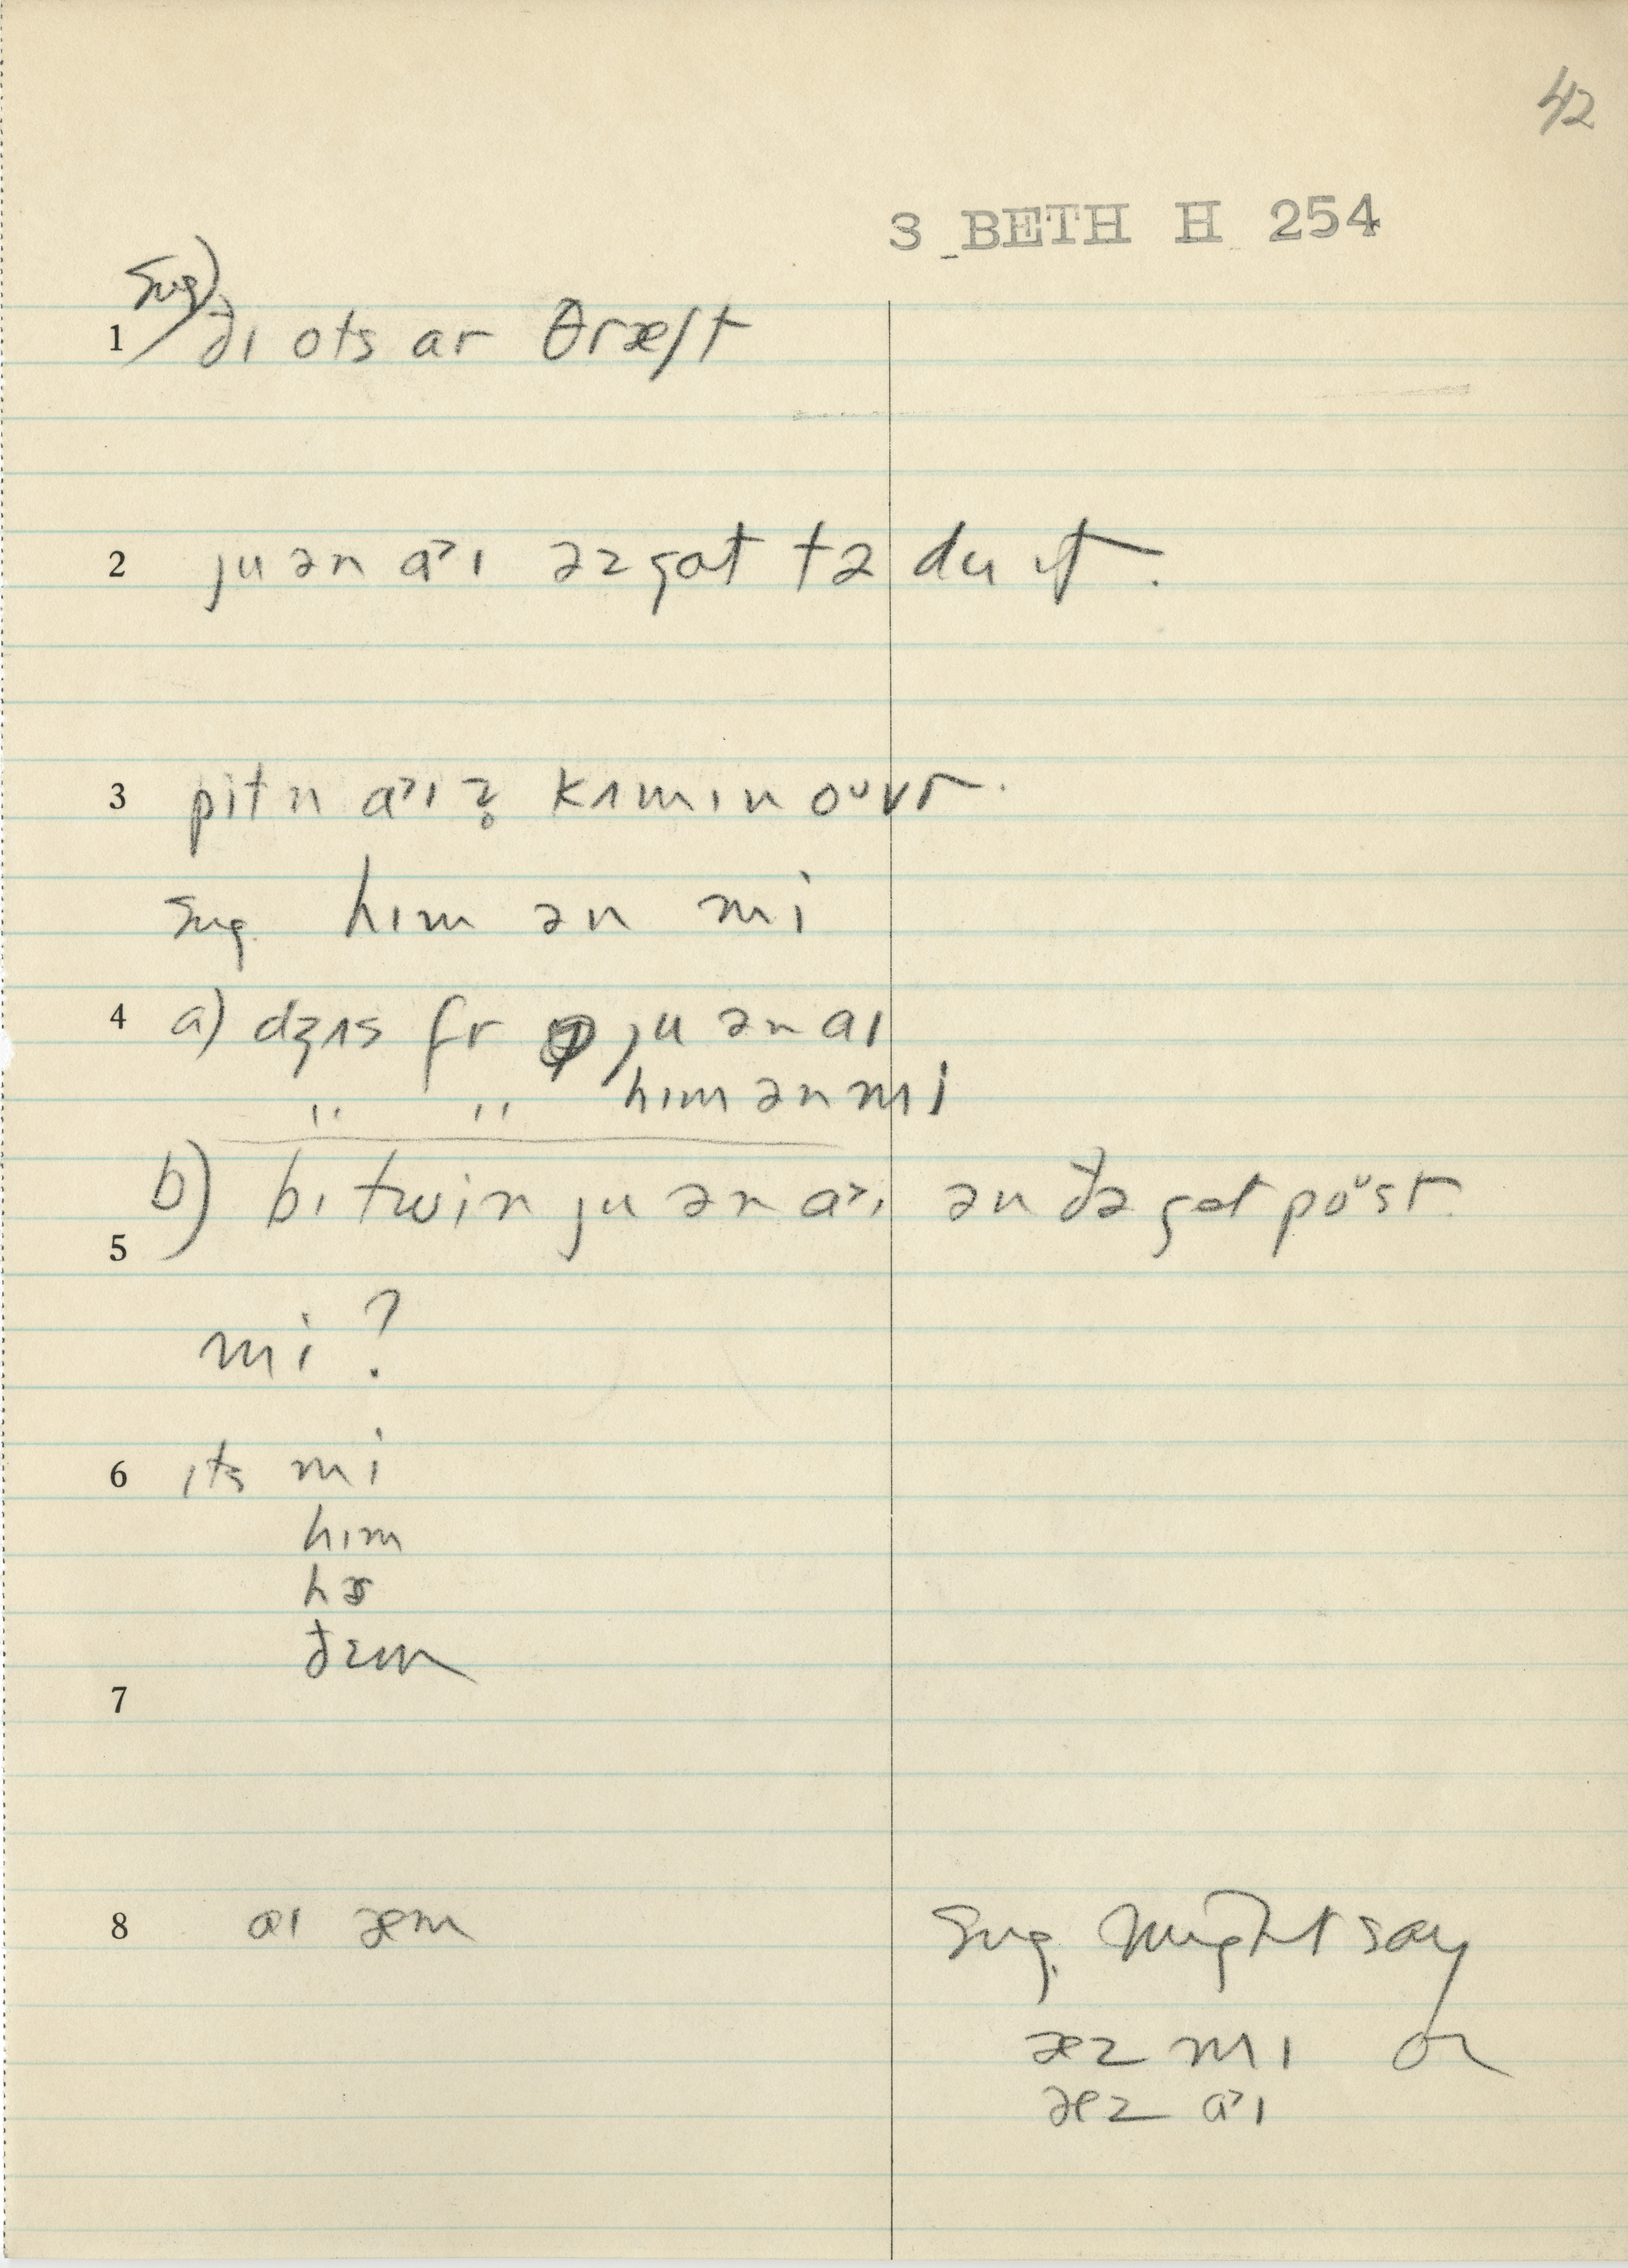 42
3 BETH H 254
sug)
1 ðɪ ots ar θræʃt
2 ju ən a˃ɪ əz gat tə du ɪt.
3 pitn a˃ɪ z̥ kʌmɪn oᵘvr.
sug. hɪm ən mi
4 a) dʒʌs fr ju ən aɪ
" " hɪm ən mi
b) bɪtwin ju ən a˃ɪ ən ðə gat poᵘst.
5
mi?
6 ɪts mi
hɪm
hɚ
ðɛm
7
8 aɪ æm
sug. might say
æz mɪ or
æz a˃ɪ